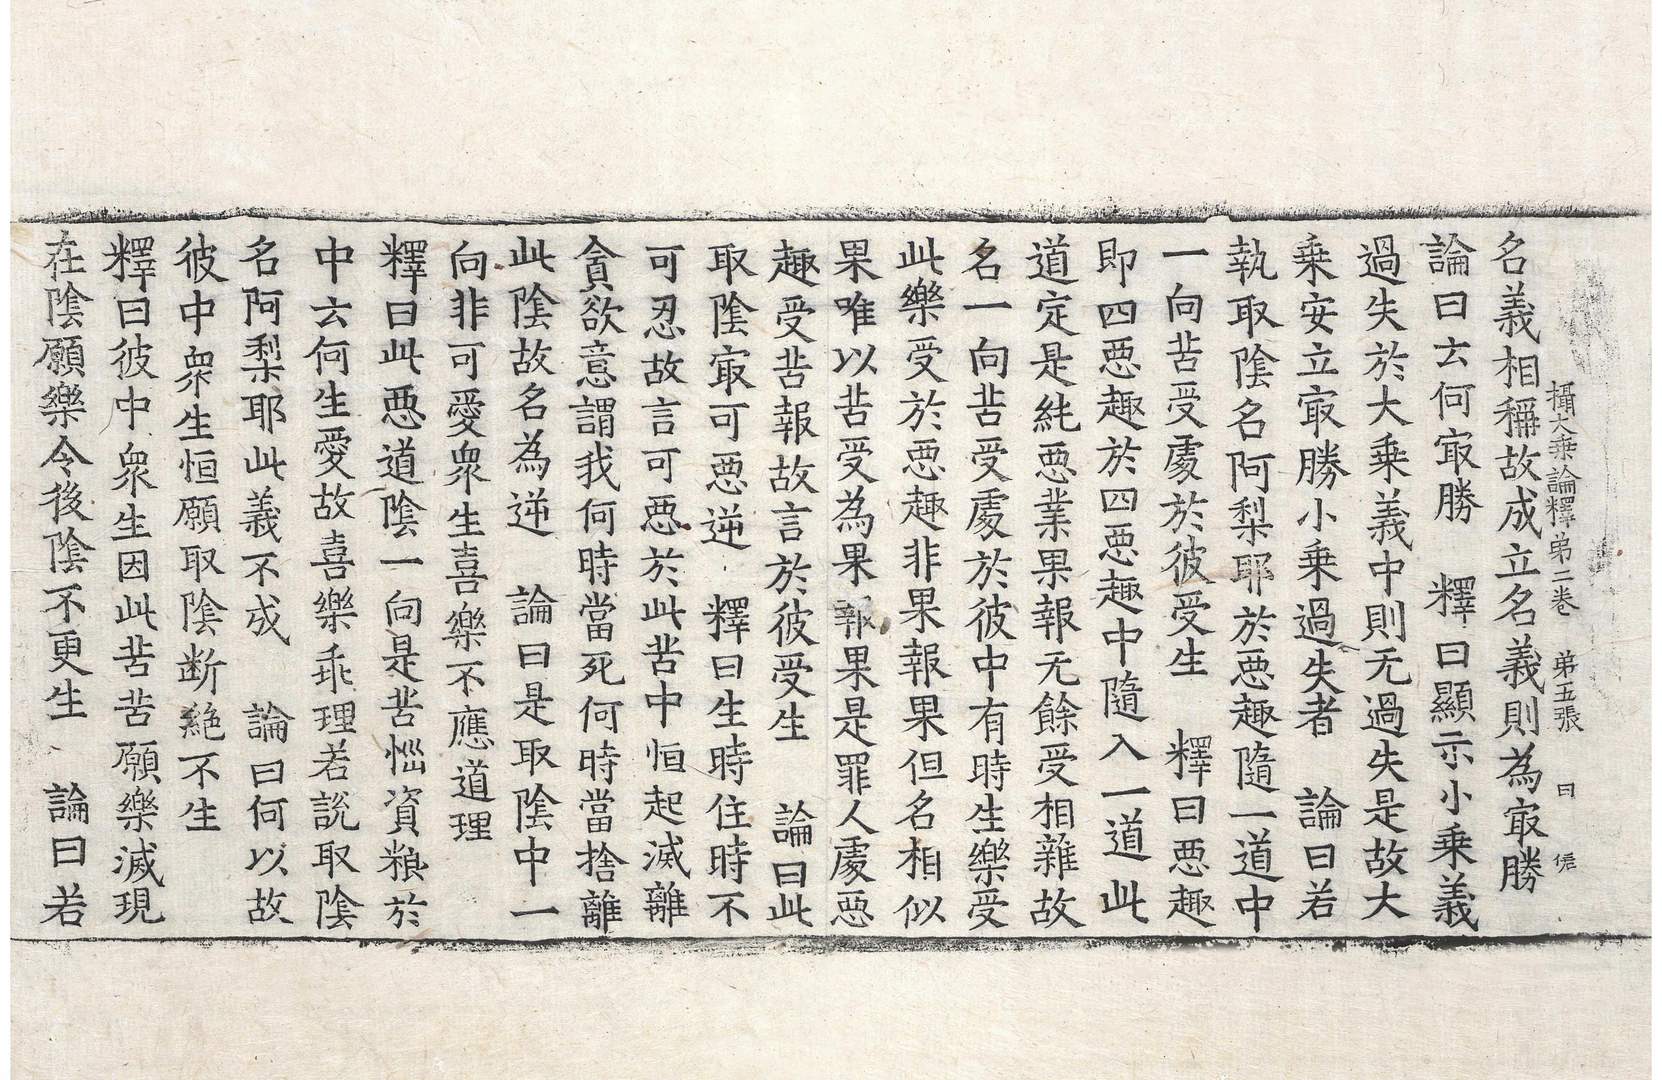 攝大乗論釋苐二卷　苐五張　曰
名義相稱故成立名義則為㝡勝
論曰云何㝡勝　釋曰顯示小乗義
過失於大乗義中則无過失是故大
乗安立㝡勝小乗過失者　論曰若
執取陰名阿梨耶於惡趣隨一道中
一向苦受處於彼受生　釋曰惡趣
即四惡趣於四惡趣中隨入一道此
道定是純惡業果報无餘受相雜故
名一向苦受處於彼中有時生樂受
此樂受於惡趣非果報果但名相似
果唯以苦受為果報果是罪人處惡
趣受苦報故言於彼受生　論曰此
取陰㝡可惡逆　釋曰生時住時不
可忍故言可惡於此苦中恒起滅離
貪欲意謂我何時當死何時當捨離
此陰故名為逆　論曰是取陰中一
向非可愛衆生喜樂不應道理
釋曰此惡道陰一向是苦惱資粮於
中云何生愛故喜樂乖理若說取陰
名阿梨耶此義不成　論曰何以故
彼中衆生恒願取陰断絶不生
釋曰彼中衆生因此苦苦願樂滅現
在陰願樂令後陰不更生　論曰若